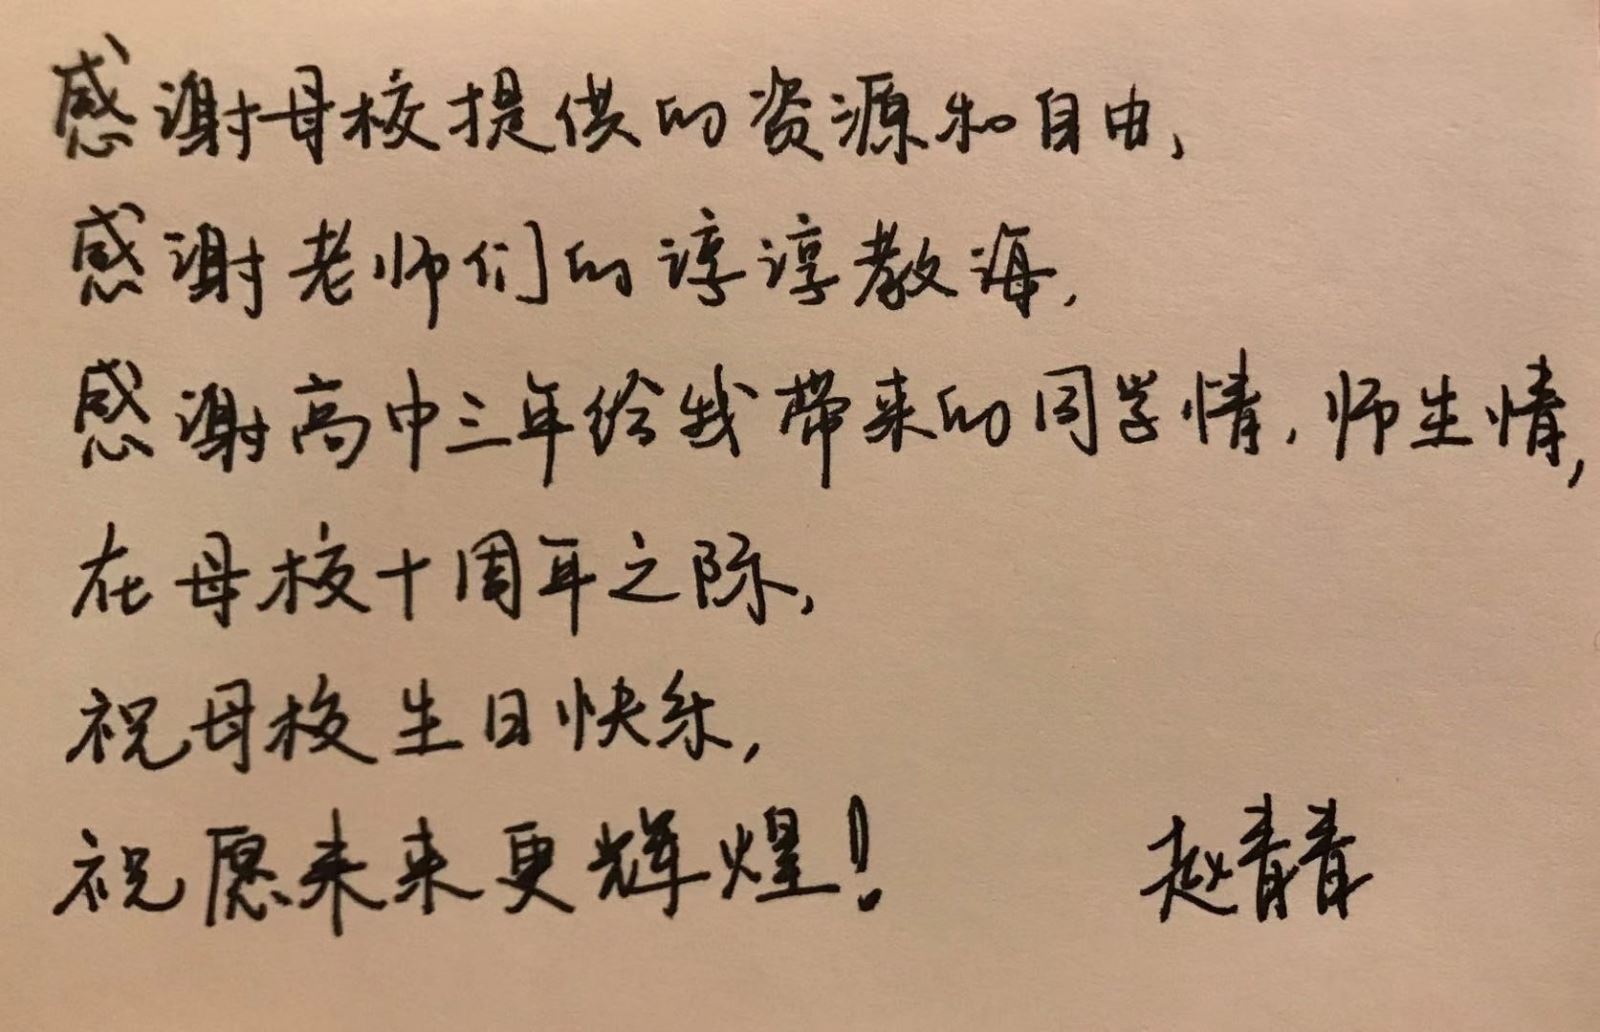 感谢母校提供的资源和自由,
感谢老师们的谆谆教诲,
感谢高中三年给我带来的同学情,师生情,
在母校十周年之际,
祝母校生日快乐,
祝愿未来更辉煌!
赵青青